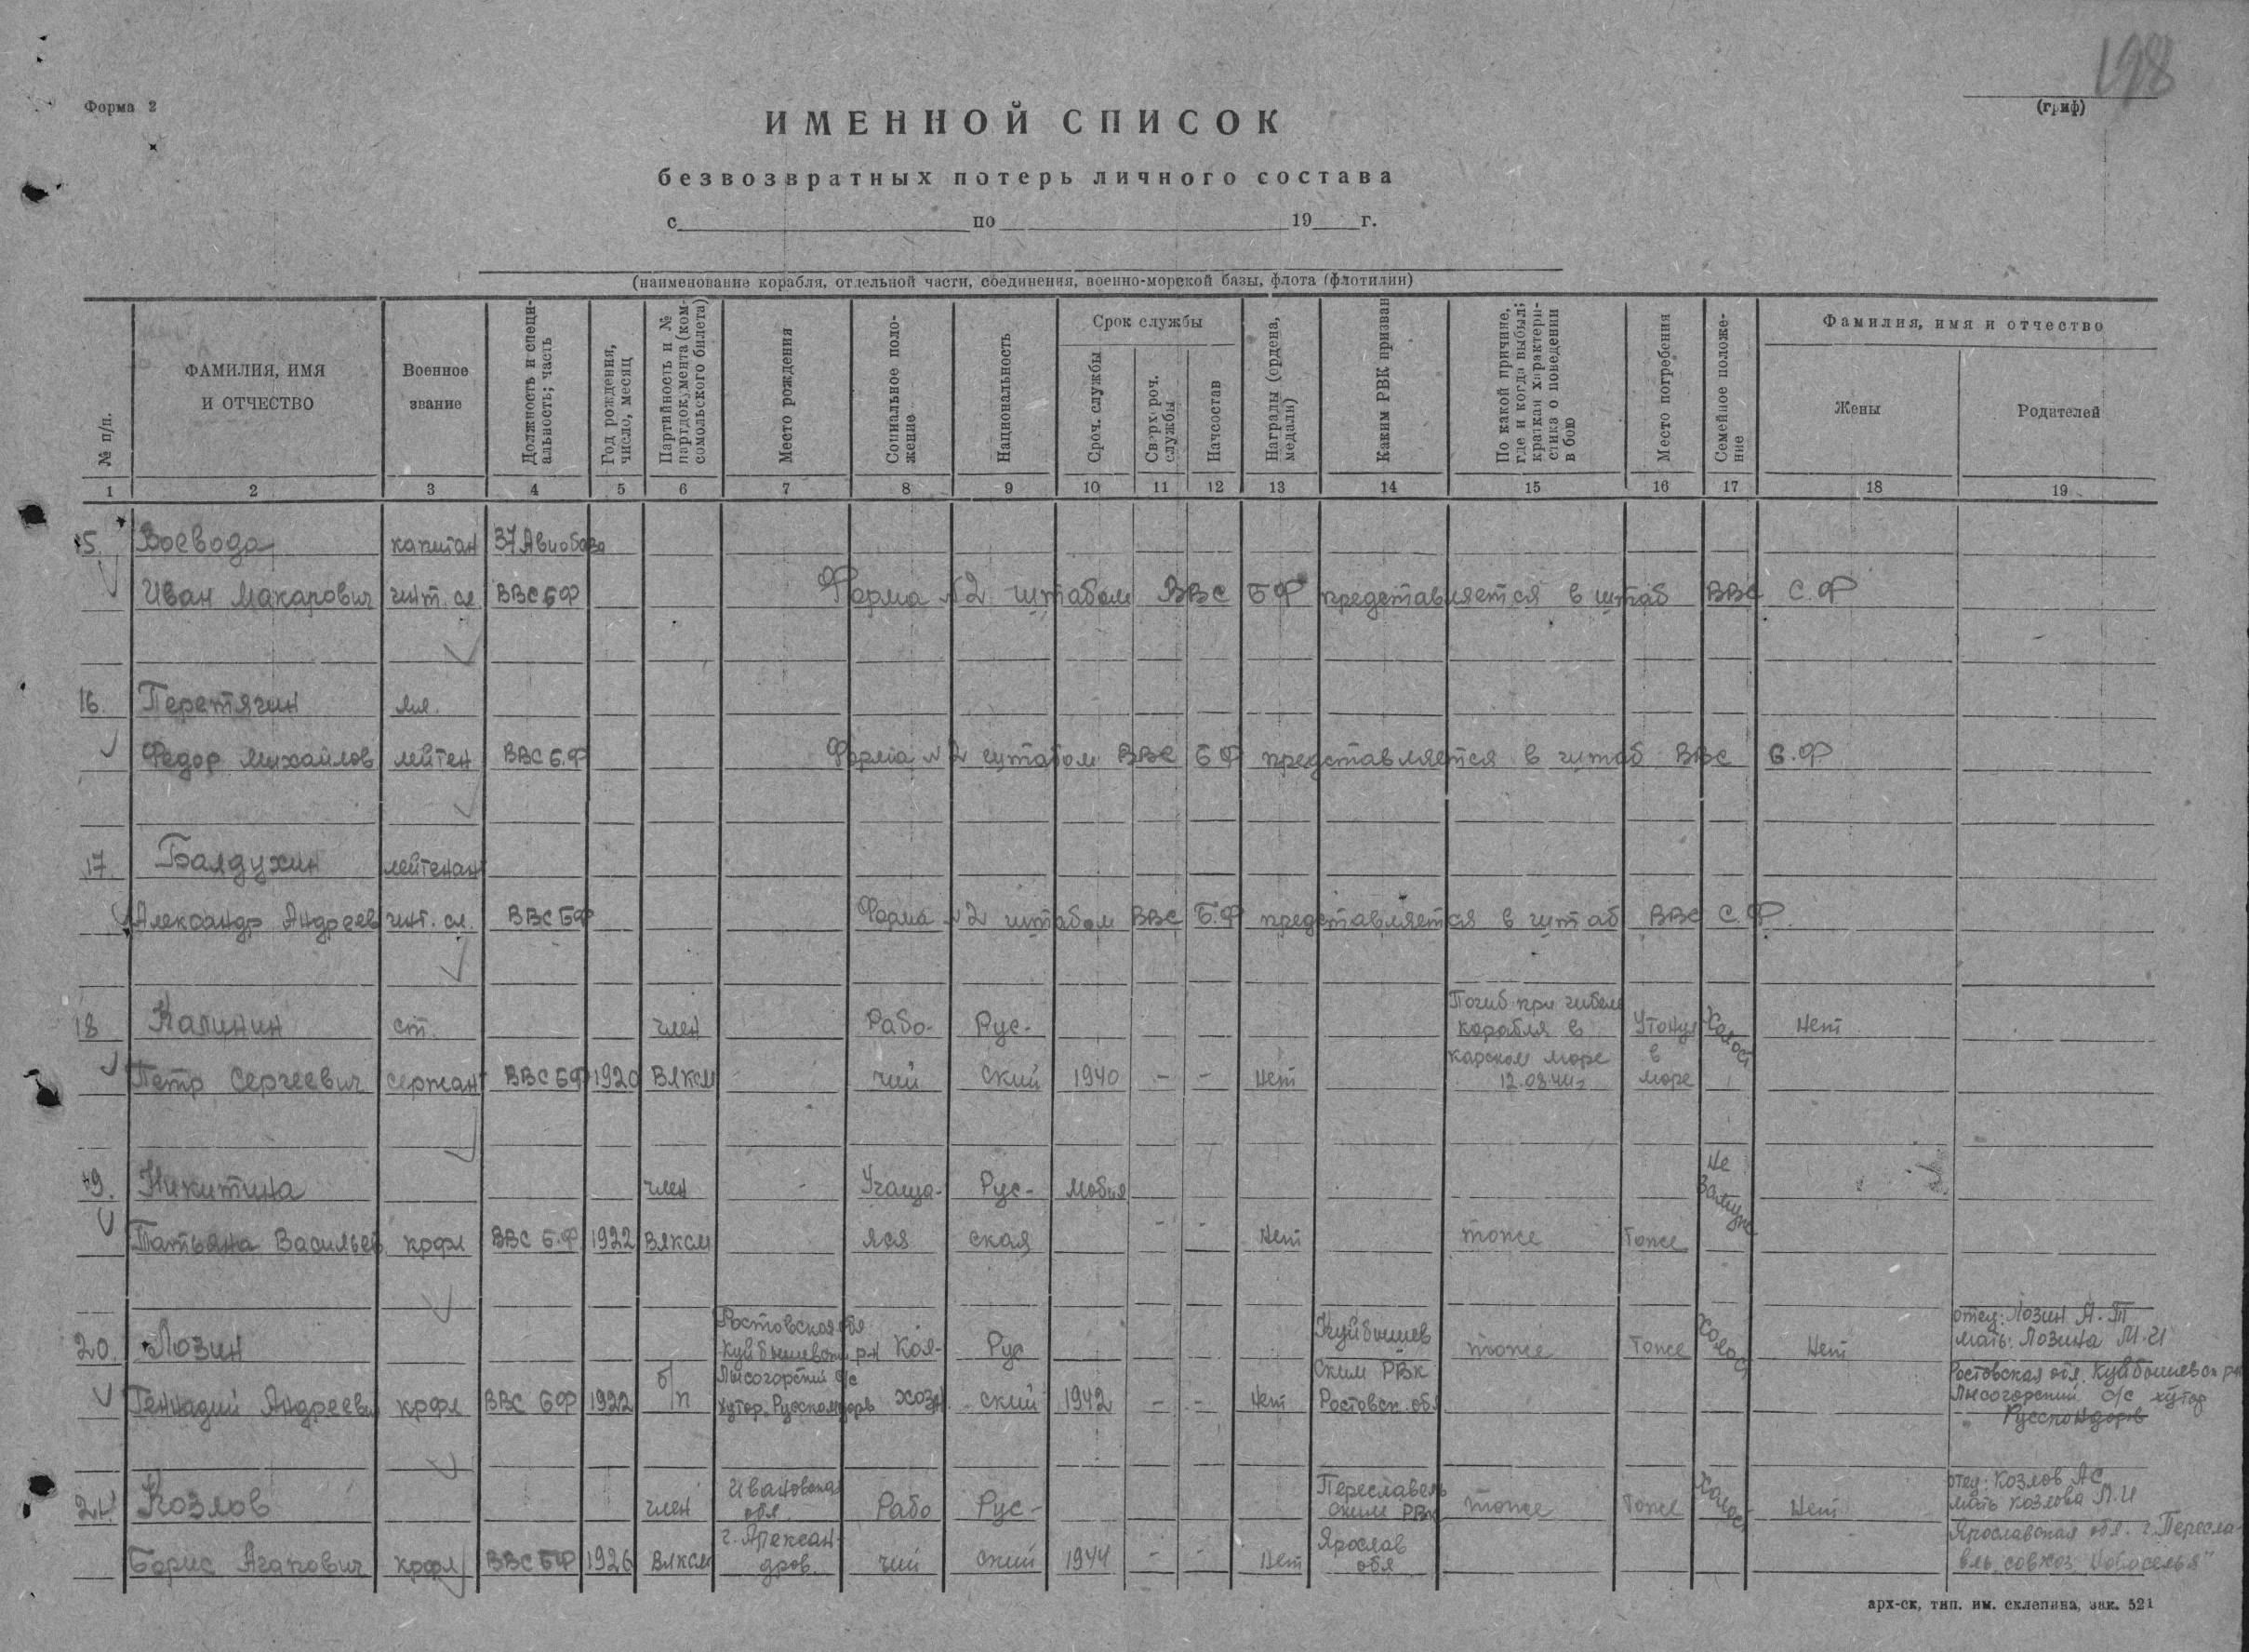 198
Форма 2
(гриф)
ИМЕННОЙ СПИСОК
безвозвратных потерь личного состава
с по 19 г.
(наименование корабля, отдельной части, соединения, военно-морской базы, флота (флотилии)
№ п/п.
ФАМИЛИЯ, ИМЯ
И ОТЧЕСТВО
Военное
звание
Должность и специ-
альность; часть
Год рождения,
число, месяц
Партийность и №
партдокумента (ком-
сомольского билета)
Место рождения
Социальное поло-
жение
Национальность
Срок службы
Сроч. службы
Сверхсроч.
службы
Начсостав
Награды (ордена,
медали)
Каким РВК призван
По какой причине,
где и когда выбыл;
краткая характери-
стика о поведении
в бою
Место погребения
Семейное положе-
ние
Фамилия, имя и отчество
Жены
Родителей
1 2 3 4 5 6 7 8 9 10 11 12 13 14 15 16 17 18 19
15. Воевода капитан 37 Авиобаза
Иван Макарович инт. сл ВВС БФ Форма №2 штабом ВВС БФ представляется в штаб ВВС С.Ф
16. Перетягин мл.
Федор Михайлов лейтен ВВС Б.Ф Форма №2 штабом ВВС БФ представляется в штаб ВВС С.Ф
17. Балдухин лейтенант
Александр Андреев инт. сл. ВВС БФ Форма №2 штабом ВВС Б.Ф представляется в штаб ВВС С.Ф.
18 Калинин ст. член Рабо- Рус- Погиб при гибели корабля в Утонул Холост Нет
Петр Сергеевич сержант ВВС БФ 1920 ВЛКСМ чий ский 1940 - - Нет карском море 12.08.44г в море
19. Никитина член Учаща- Рус- мобил Не замужем
Татьяна Васильев крфл ВВС Б.Ф 1922 ВЛКСМ яся ская - - Нет тоже Тоже
20. Лозин Ростовская обл Куйбышевский р-н Кол- Рус Куйбышев тоже Тоже Холост Нет отец: Лозин А.Т мать: Лозина М.И
Геннадий Андреевич крфл ВВС БФ 1922 б/п Лысогорский с/с хутор хозн ский 1942 - - Нет ским РВК Ростовск. обл Ростовская обл. Куйбышевск р-н
Лысогорский с/с хутор
21. Козлов член Ивановская обл. Рабо Рус- Переславль ским РВК тоже Тоже Холост Нет отец: Козлов АС мать Козлова П.И
Борис Агапович крфл ВВС БФ 1926 ВЛКСМ г. Александров. чий ский 1944 - - Нет Ярослав обл Ярославская обл. г. Пересла-
вль совхоз Новоселья"
арх-ск, тип. им. склепина, зак. 521